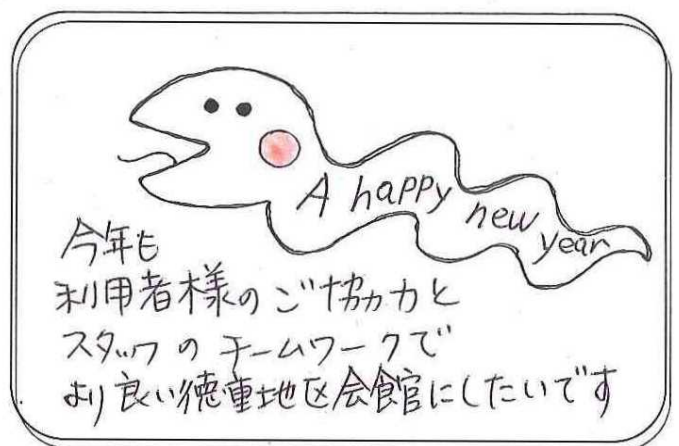 A happy new year
今年も
利用者様のご協力と
スタッフのチームワークで
より良い徳重地区会館にしたいです